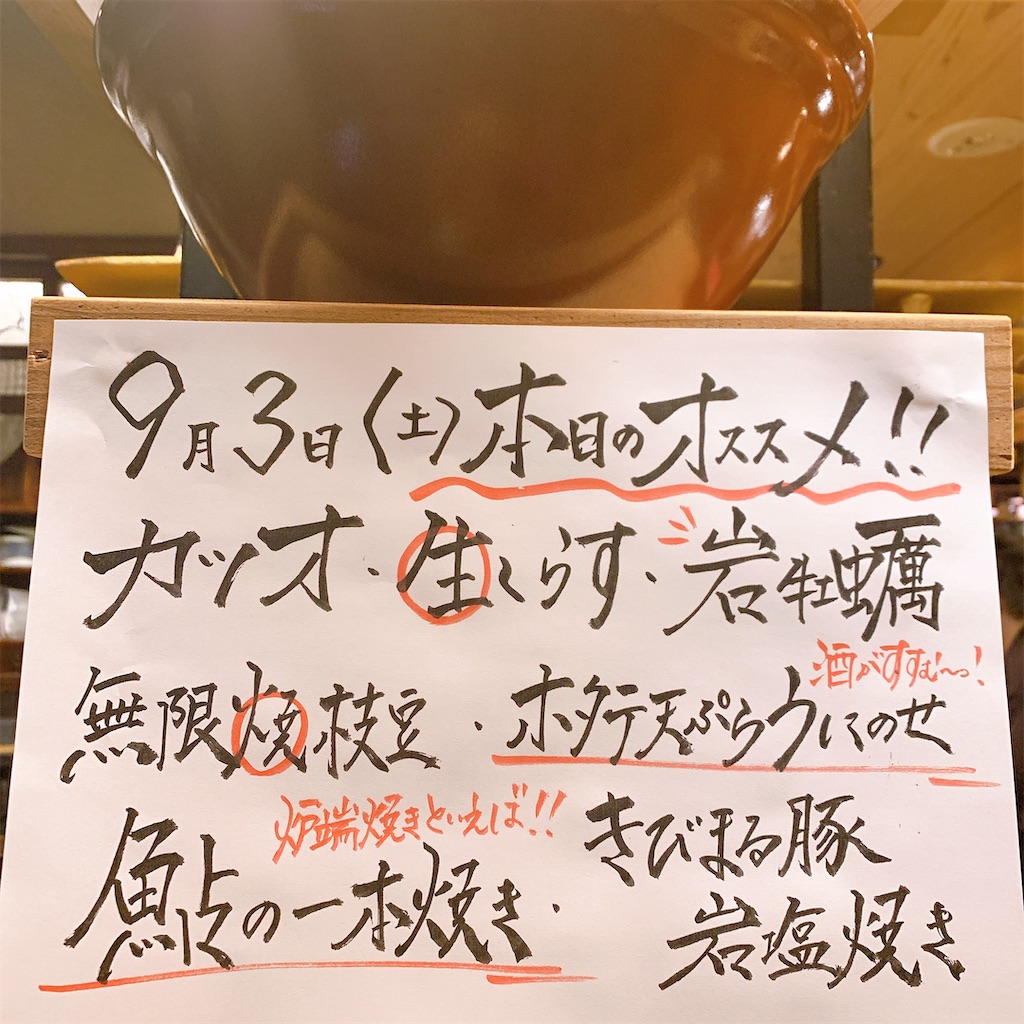 9月3日(土)本日のオススメ!!
カツオ・生しらす・岩牡蠣
酒がすすむ〜っ!
無限焼枝豆・ホタテ天ぷらうにのせ
炉端焼きといえば!!
鮎の一本焼き・きびまる豚
岩塩焼き